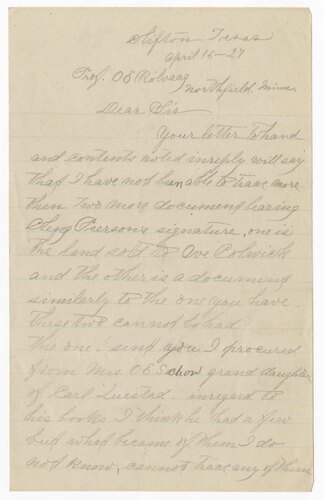 Clifton Texas
April 16-27
Prof. OE Rolvaag
Northfield, Minn.
Dear Sir
Your letter to hand
and contents noted inreply will say
that I have not been able to trace more
then two more document bearing
Cleng Peerson's signature, one is
the land sold to Ove Colwick
and the other is a document
similerly to the one you have
These two cannot be had
the one I send you I procured
from Mrs. OE Schow grand daughter
of Carl Questad. inregard to
his books I think he had a few
but what became of them I do
not know, cannot trace any of them